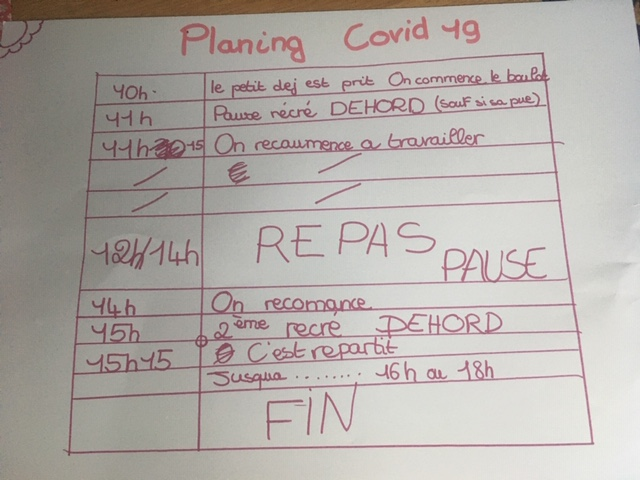 Planing Covid 19
10h. le petit dej est prit On commence le boulot
11h Pause récré DEHORD (sauf si sa pue)
11h 15 On recaumence a travailler
12h/14h REPAS PAUSE
14h On recomance
15h 2ème recré DEHORD
15h15 C'est repartit
Jusqua ........ 16h ou 18h
FIN